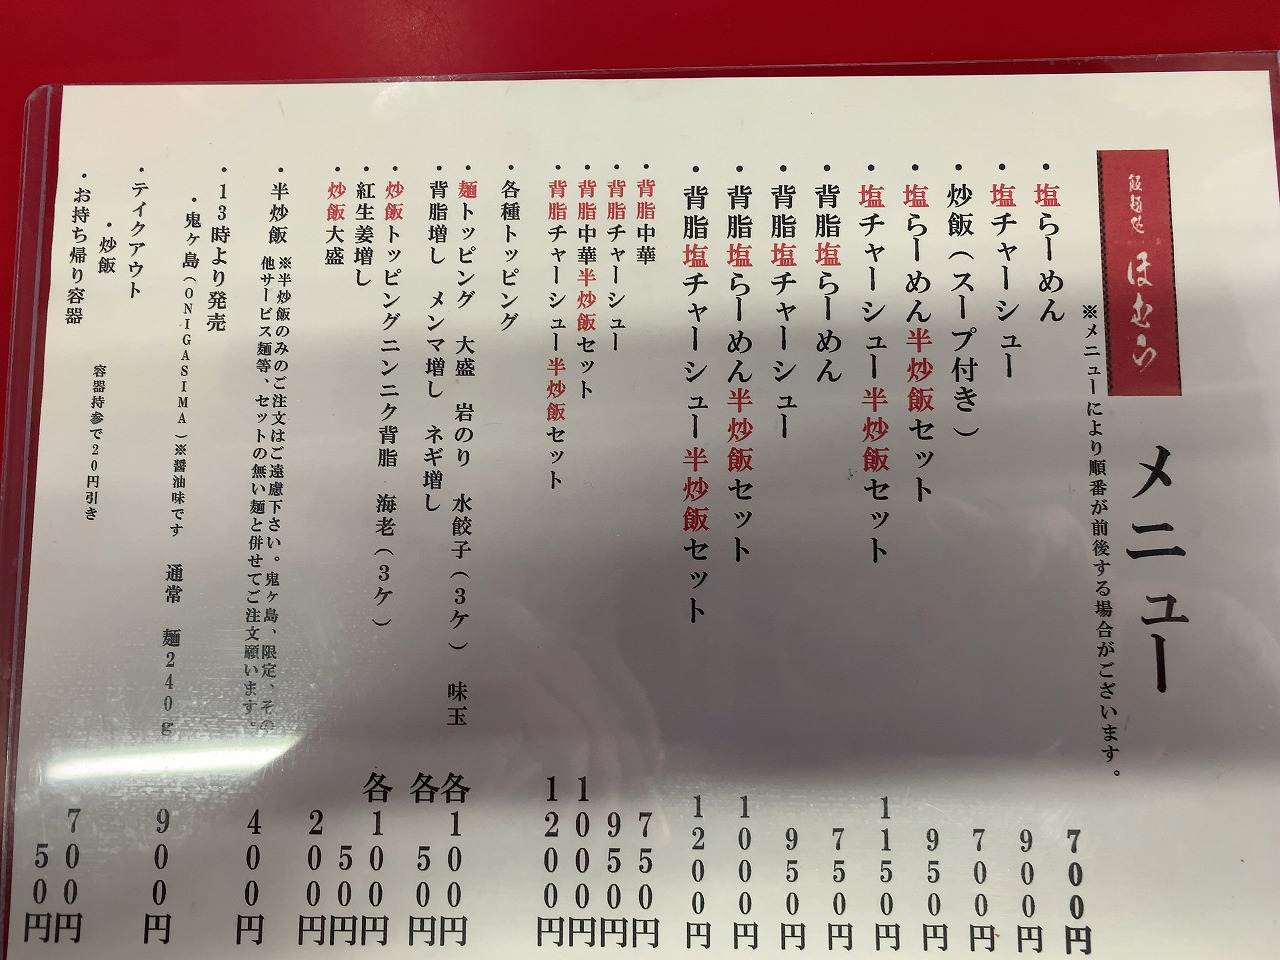 飯麺処 ほむら
メニュー
※メニューにより順番が前後する場合がございます。
・塩らーめん 700円
・塩チャーシュー 900円
・炒飯(スープ付き) 700円
・塩らーめん半炒飯セット 950円
・塩チャーシュー半炒飯セット 1150円
・背脂塩らーめん 750円
・背脂塩チャーシュー 950円
・背脂塩らーめん半炒飯セット 1000円
・背脂塩チャーシュー半炒飯セット 1200円
・背脂中華 750円
・背脂チャーシュー 950円
・背脂中華半炒飯セット 1000円
・背脂チャーシュー半炒飯セット 1200円
・各種トッピング
・麺トッピング 大盛 岩のり 水餃子(3ケ) 味玉 各100円
背脂増し メンマ増し ネギ増し 各50円
・炒飯トッピングニンニク背脂 海老(3ケ) 各100円
・紅生姜増し 50円
・炒飯大盛 200円
・半炒飯 400円
※半炒飯のみのご注文はご遠慮下さい。鬼ヶ島、限定、その
他サービス麺等、セットの無い麺と併せてご注文願います。
・13時より発売
・鬼ヶ島(ONIGASIMA)※醤油味です 通常 麺240g 900円
・テイクアウト
・炒飯 700円
容器持参で20円引き
・お持ち帰り容器 50円